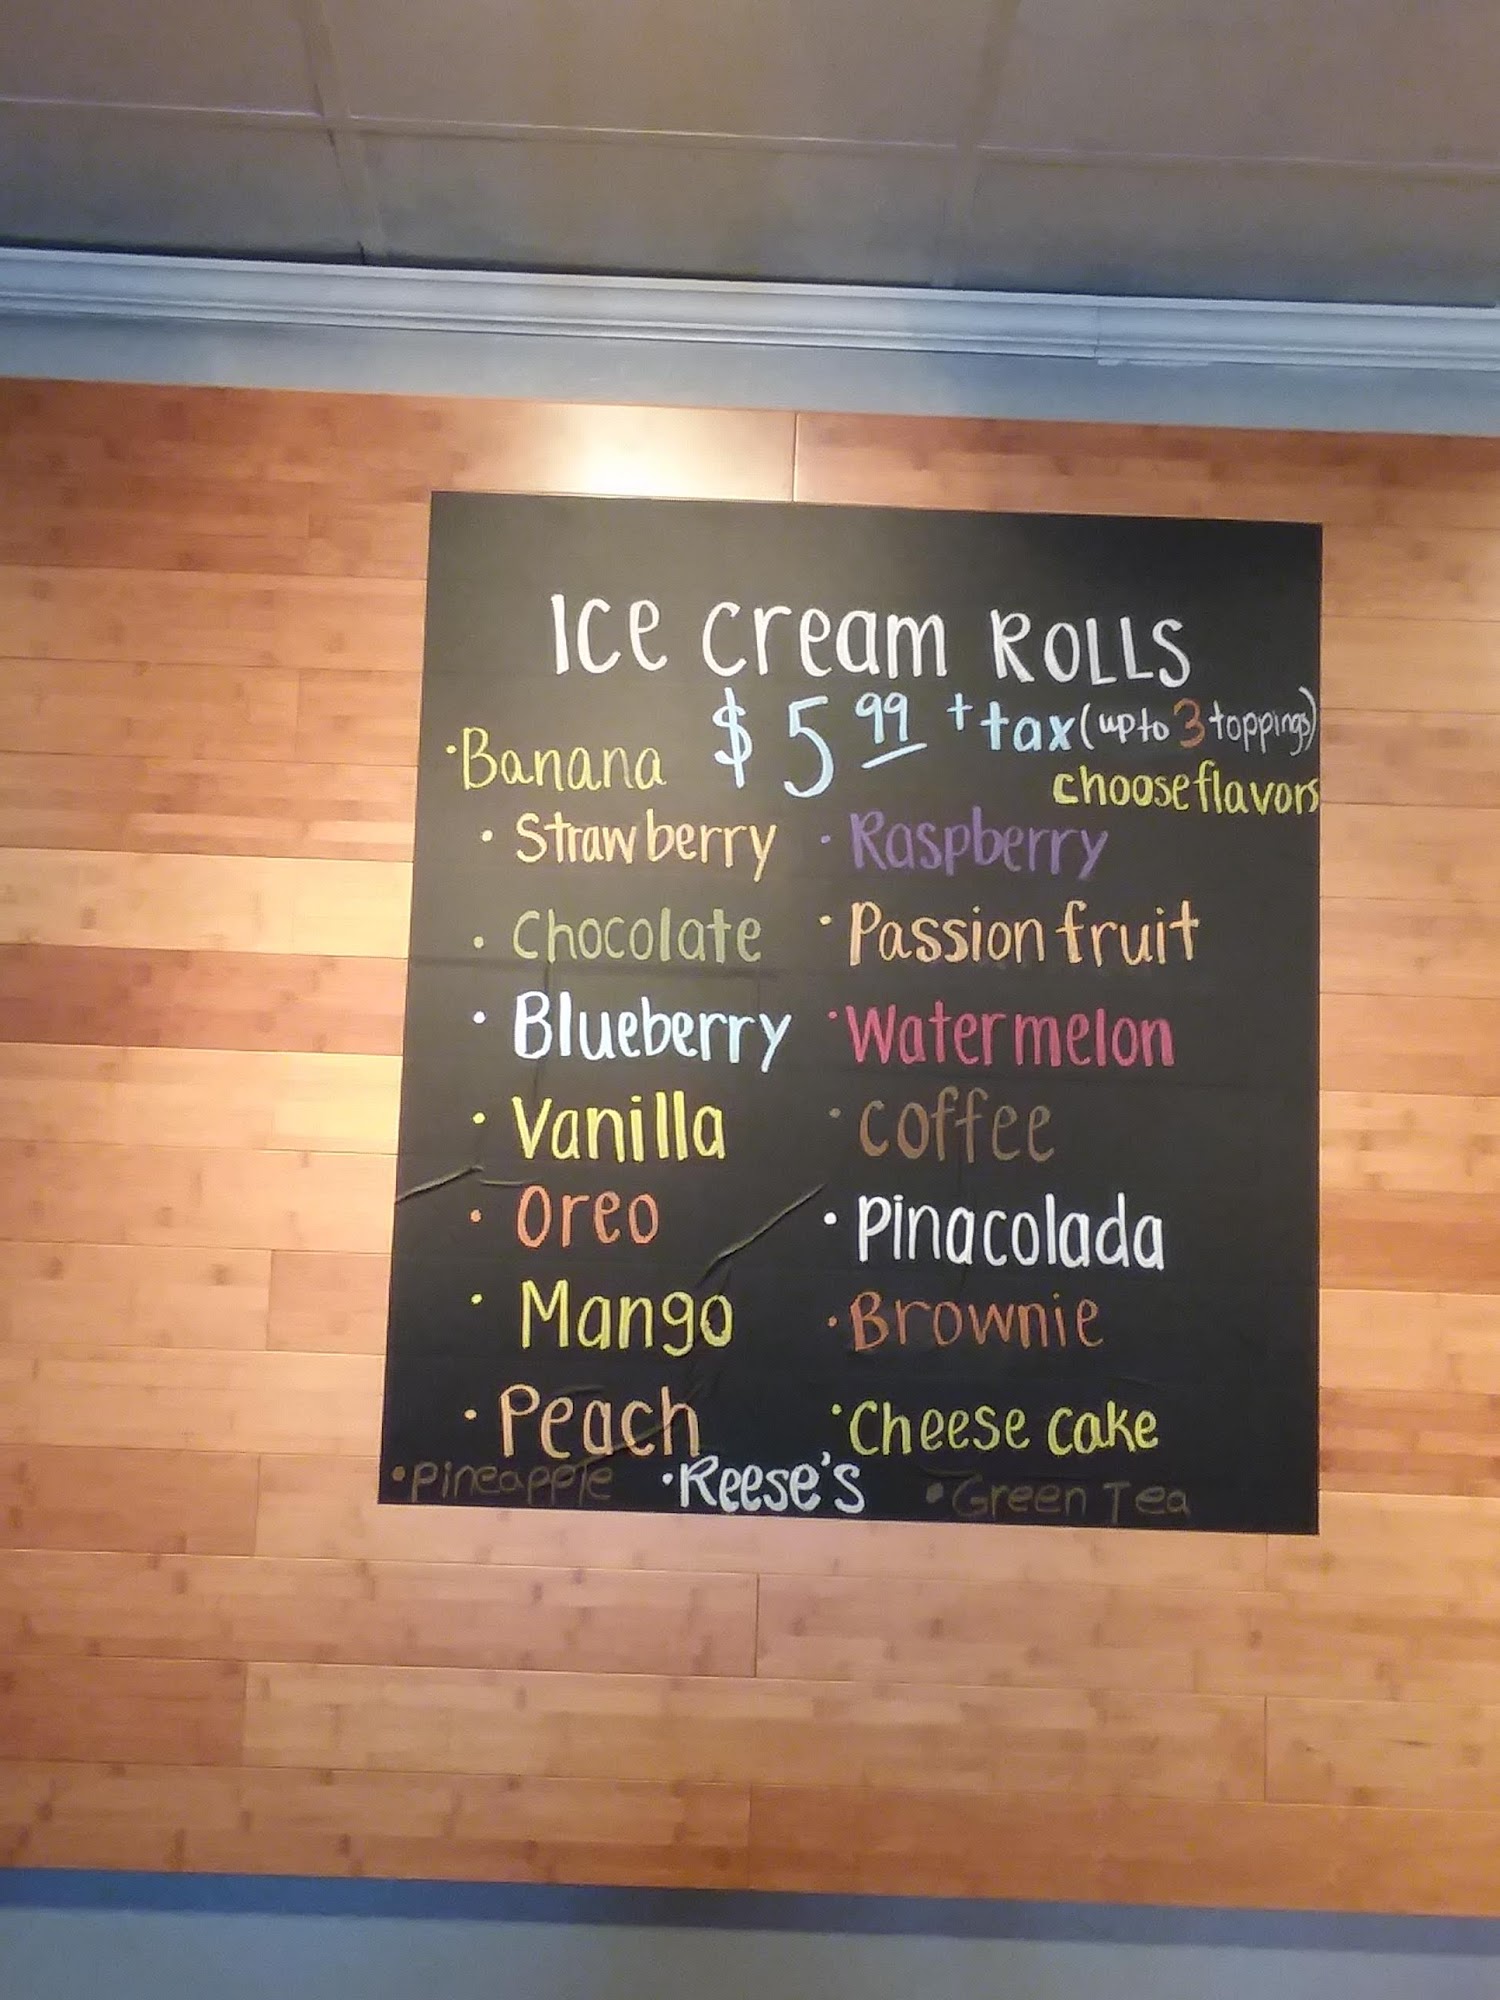 Ice Cream ROLLS
$5.99 + tax (up to 3 toppings)
• Banana
choose flavors
• Strawberry • Raspberry
• Chocolate • Passion fruit
• Blueberry • Watermelon
• Vanilla • coffee
• Oreo • Pinacolada
• Mango • Brownie
• Peach • Cheese cake
• Pineapple • Reese's • Green Tea